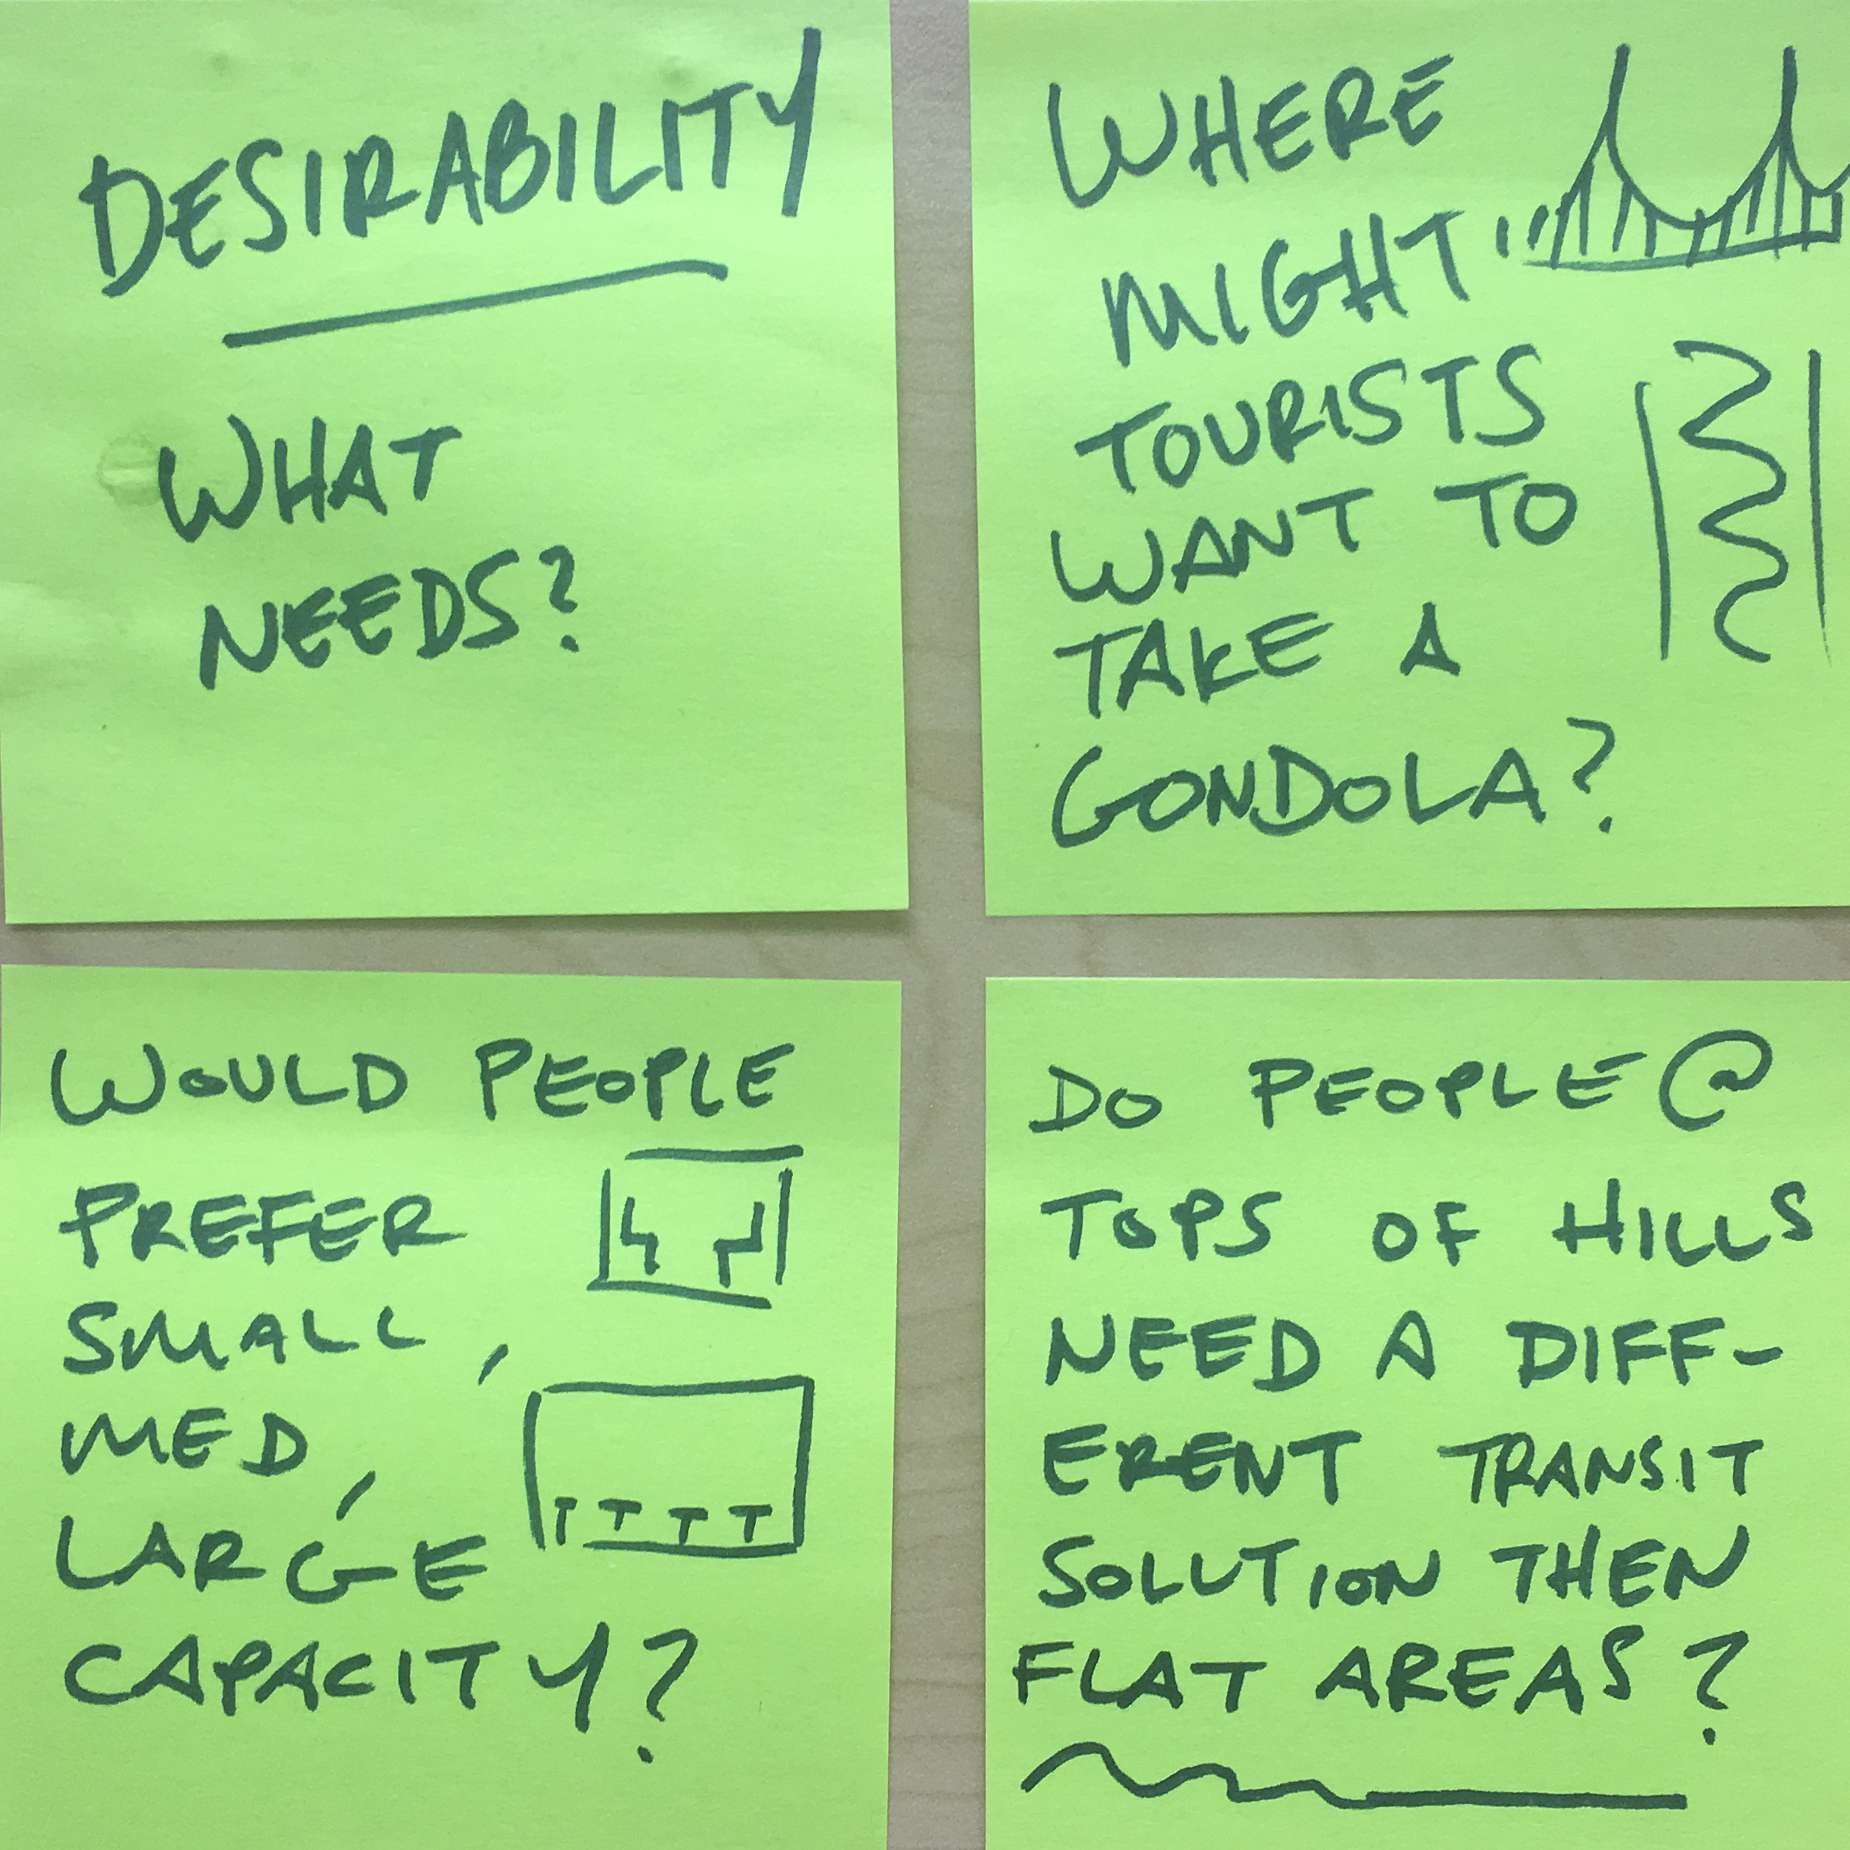 DESIRABILITY
WHAT
NEEDS?
WHERE
MIGHT
TOURISTS
WANT TO
TAKE A
GONDOLA?
WOULD PEOPLE
PREFER
SMALL,
MED,
LARGE
CAPACITY?
DO PEOPLE @
TOPS OF HILLS
NEED A DIFF-
ERENT TRANSIT
SOLUTION THEN
FLAT AREAS?